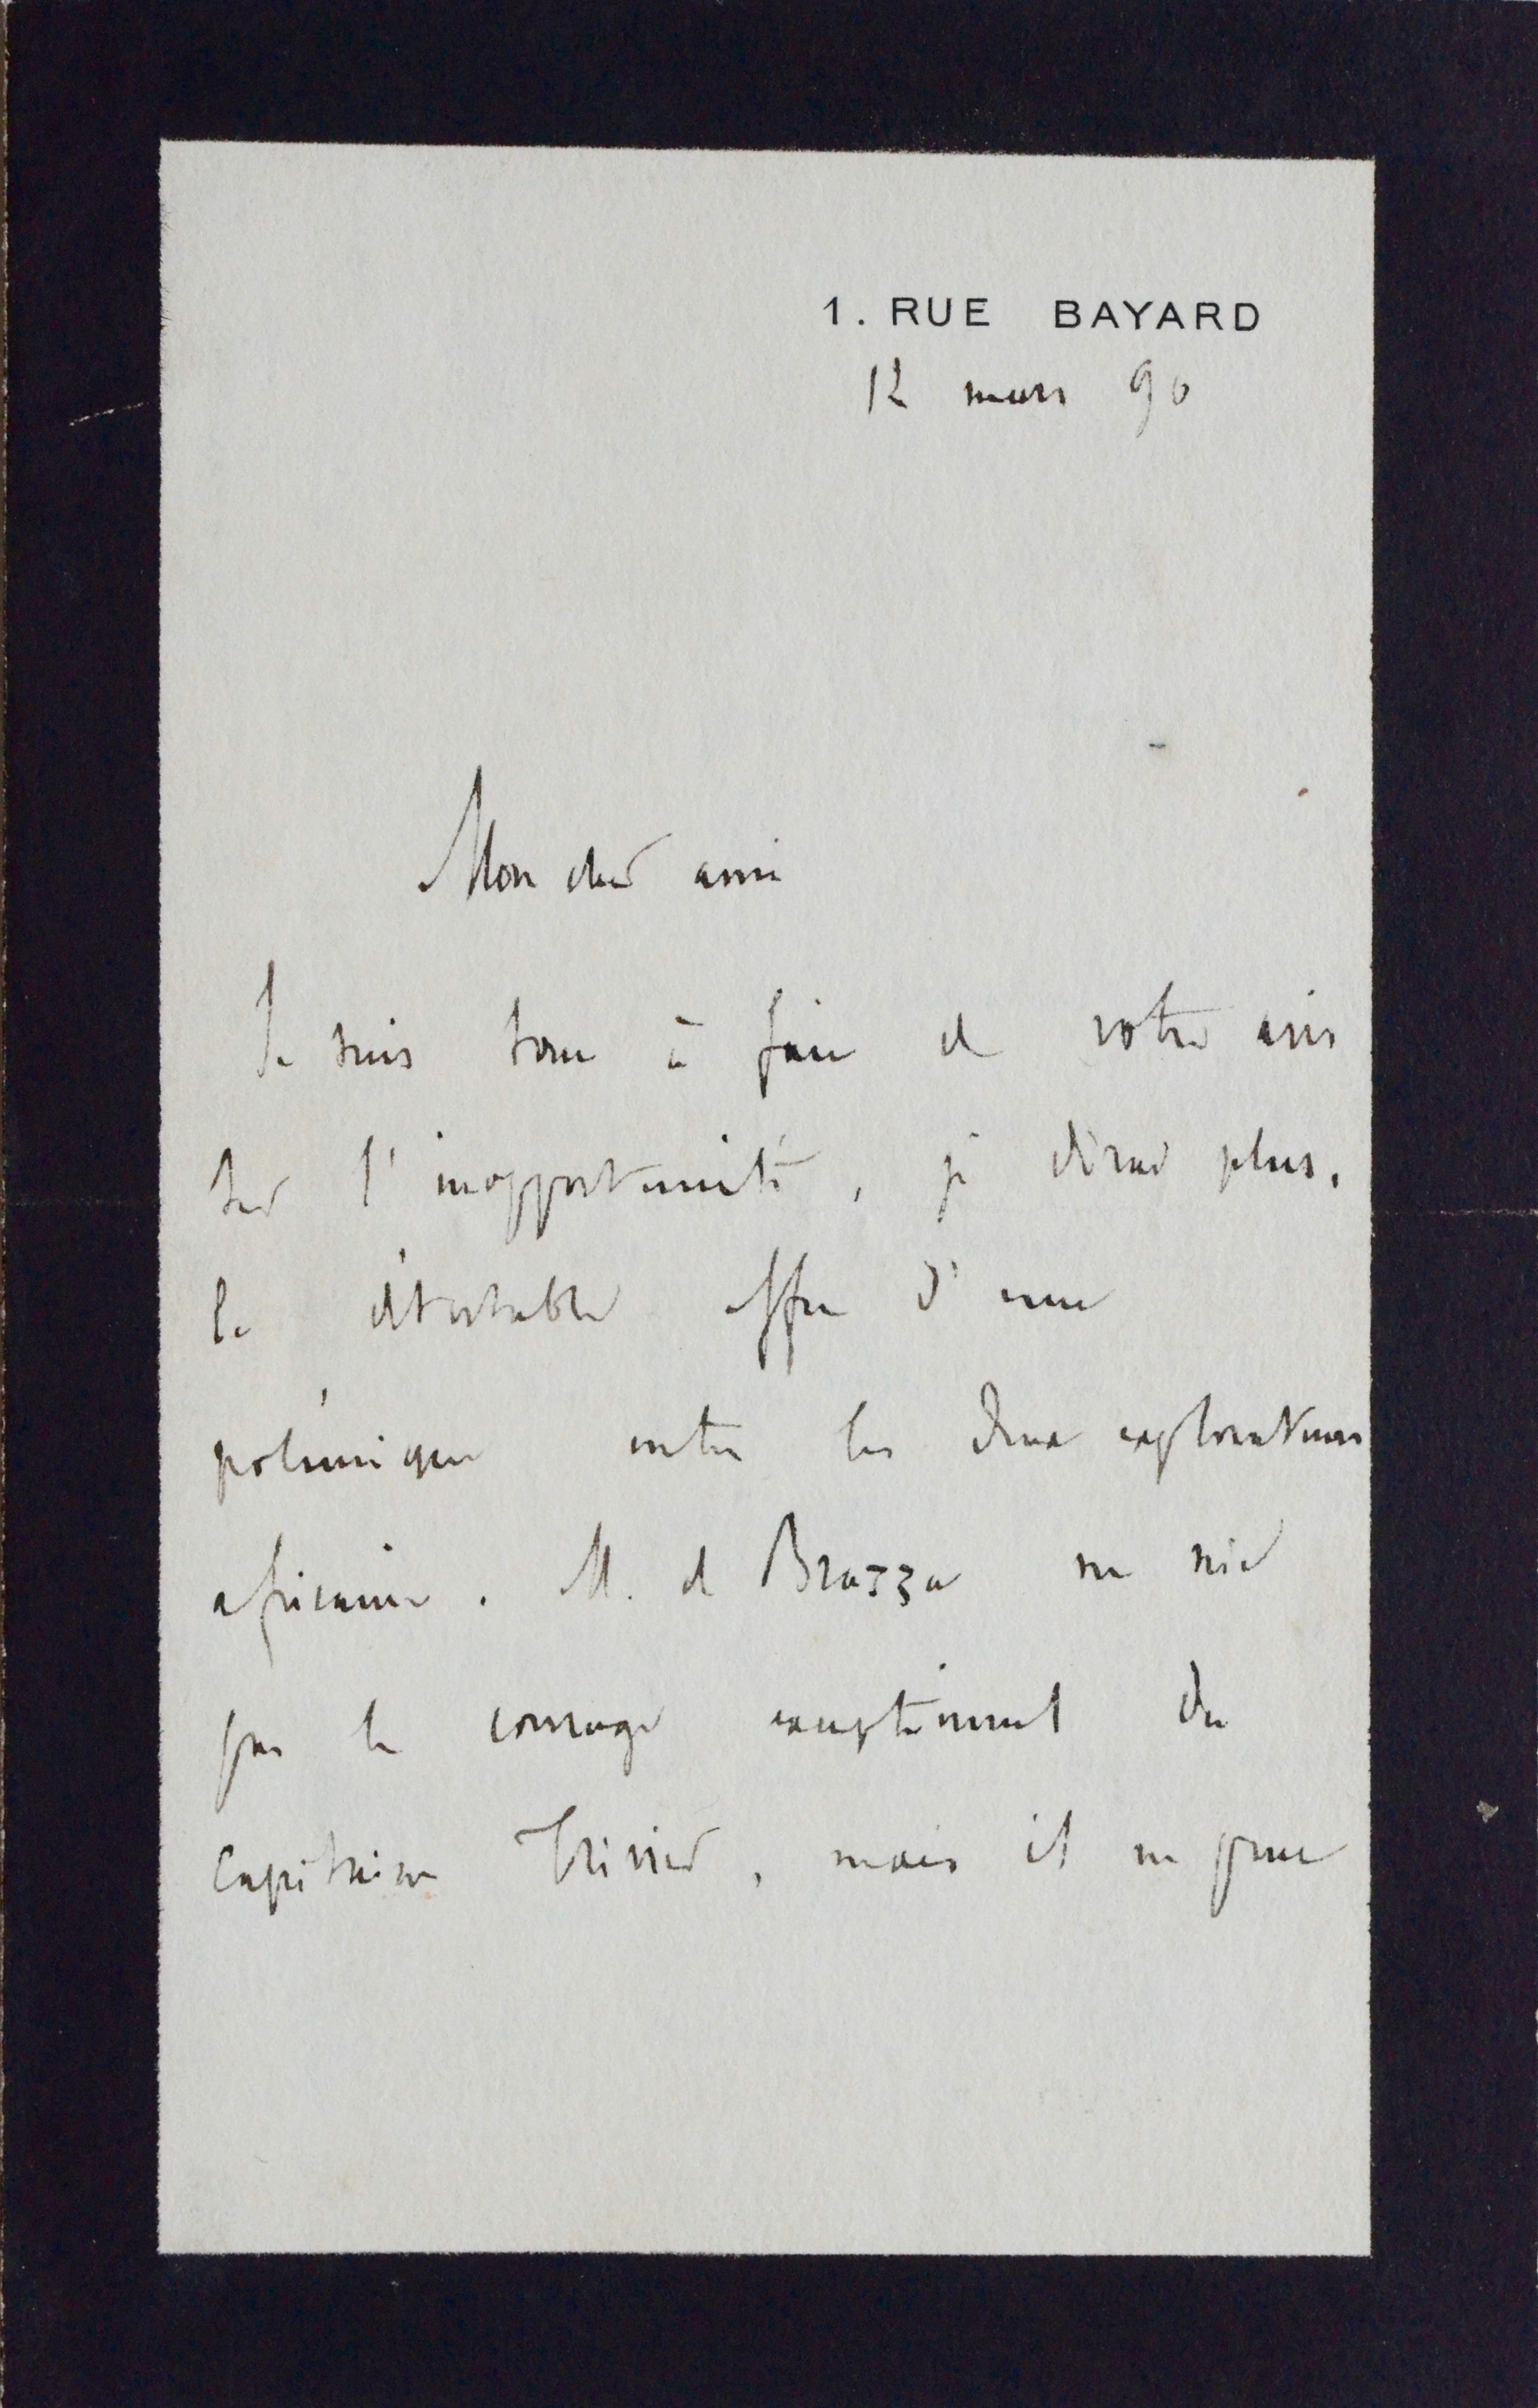 1. RUE BAYARD
12 mars 90
Mon cher ami
Je suis tout à fait de votre avis
sur l'inopportunité, je dirai plus,
le détestable effet d'une
polémique entre les deux explorateurs
africains. M. de Brazza ne nie
pas le courage exceptionnel du
Capitaine Trivier, mais il ne peut